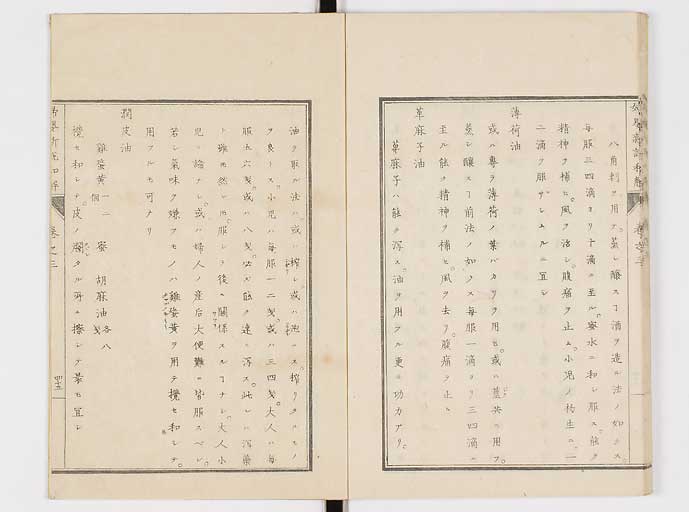 八角刺ヲ用テ蒸シ釀スヿ酒ヲ造ル法ノ如クス。
毎服三四滴ヨリ十滴ニ至ル。蜜水ニ和シ服ス。能ク
精神ヲ補ヒ。風ヲ治シ。腹痛ヲ止ム。小児ノ 生ニハ一
二滴ヲ服ザシムルニ宜シ
薄荷油
或ハ專ラ薄荷ノ葉バカリヲ用ヒ。或ハ莖共ニ用フ。
蒸シ釀スヿ前法ノ如クス毎服一滴ヨリ三四滴ニ
至ル能ク精神ヲ補ヒ。風ヲ去リ。腹痛ヲ止ム
萆麻子油
萆麻子ハ能ク瀉ス。油ヲ用フル更ニ功力アリ。
油ヲ取ル法ハ或ハ搾シ。或ハ 。搾リタルモノ
ヲ良トス。小児ハ毎服一二戔。或ハ三四戔。大人ハ毎
服五六戔。或ハ八戔。 能ク速ニ瀉ス。此レハ瀉藥
ト雖モ然シ 服シテ後ニ關係スルヿナシ。大人小
児ニ論ナシ。或ハ婦人ノ産后大便難ニ皆服スベシ。
若シ氣味ヲ嫌フモノハ雞蛋黄ヲ用テ攪セ和シテ。
用フルモ可ナリ
潤皮油
雞蛋黄一二個 蜜 胡麻油各八戔
攪セ和シテ。皮ノ タル所ニ擦シテ最モ宜シ
卷之三
四十五